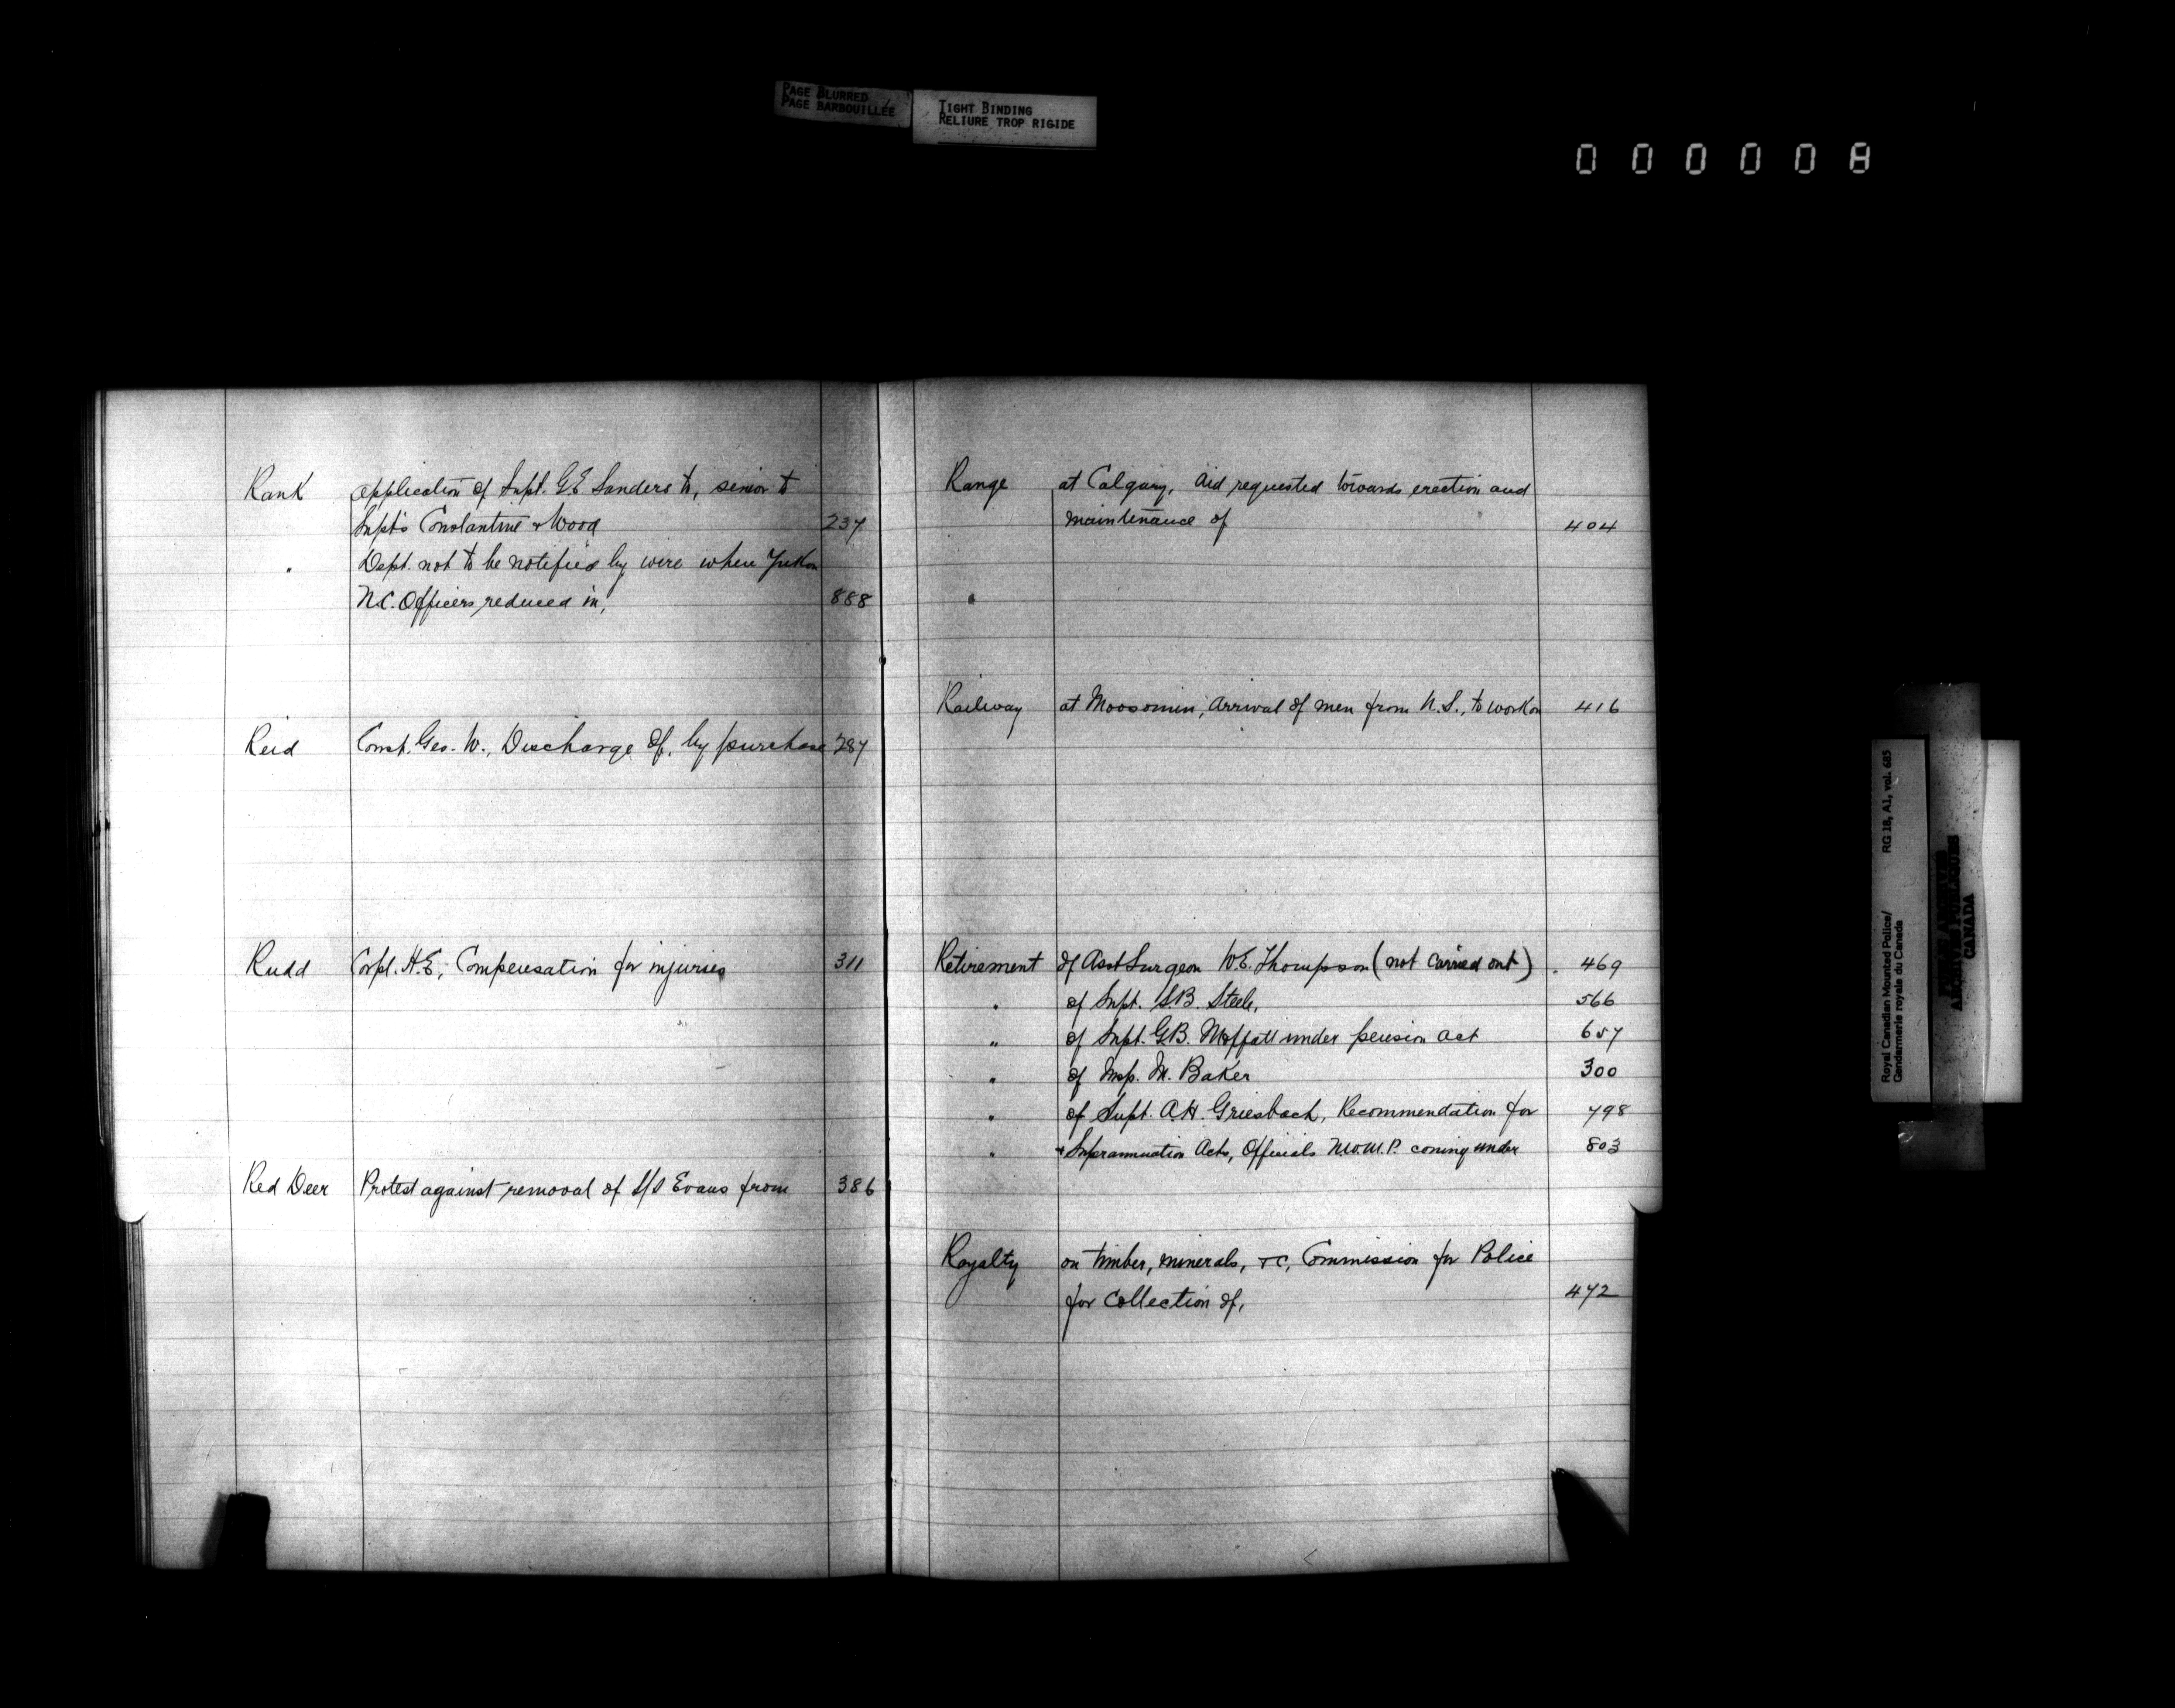 PAGE BLURRED
PAGE BARBOUILLÉE
TIGHT BINDING
RELIURE TROP RIGIDE
000008
Rank application of Supt. G.E Sanders to, senior to
Supt's Constantine & Wood 237
" Dept. not to be notified by wire when Yukon
N.C. Officers reduced in, 888
Reid Const. Geo. W., Discharge of, by purchase 287
Rudd Corpl. H.E, Compensation for injuries 311
Red Deer Protest against removal of S/S Evans from 386
Range at Calgary, aid requested towards erection and
maintenance of 404
"
Railway at Moosomin, arrival of men from N.S., to work on 416
Retirement of Asst Surgeon W.E. Thompson (not carried out) 469
" of Supt. S.B. Steele, 566
" of Supt. G.B. Moffatt under pension act 657
" of Insp. M. Baker 300
" of Supt. A.H. Griesbach, Recommendation for 798
" & Suprannuation Acts, Officials N.W.M.P. coming under 803
Royalty on timber, minerals, &c, Commission for Police
for collection of, 472
Royal Canadian Mounted Police/ RG 18, A1, vol. 685
Gendarmerie royale du Canada
PUBLIC ARCHIVES
ARCHIVES PUBLIQUES
CANADA